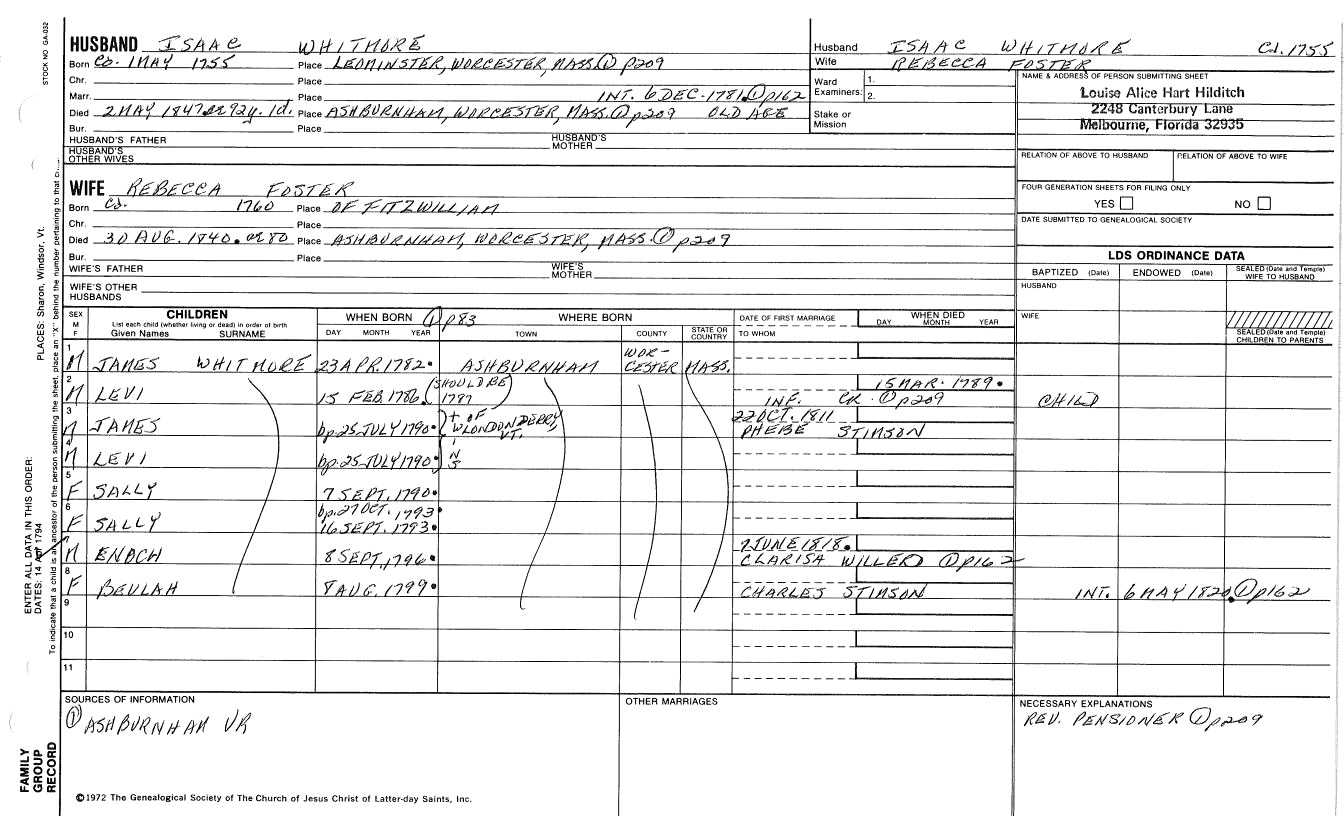 STOCK NO GA-032
HUSBAND ISAAC WHITMORE
Born Ca. 1 MAY 1755 Place LEOMINSTER, WORCESTER, MASS. ① p209
Chr. Place
Marr. Place INT. 6 DEC. 1781. ① p162
Died 2 MAY 1847. æ 92y. 1d. Place ASHBURNHAM, WORCESTER, MASS. ① p209 OLD AGE
Bur. Place
HUSBAND'S FATHER HUSBAND'S MOTHER
HUSBAND'S OTHER WIVES
WIFE REBECCA FOSTER
Born Ca. 1760 Place OF FITZWILLIAM
Chr. Place
Died 30 AUG. 1840. æ 80 Place ASHBURNHAM, WORCESTER, MASS. ① p209
Bur. Place
WIFE'S FATHER WIFE'S MOTHER
WIFE'S OTHER HUSBANDS
Husband ISAAC WHITMORE Ca. 1755
Wife REBECCA FOSTER
Ward Examiners: 1. 2.
Stake or Mission
NAME & ADDRESS OF PERSON SUBMITTING SHEET
Louise Alice Hart Hilditch
2248 Canterbury Lane
Melbourne, Florida 32935
RELATION OF ABOVE TO HUSBAND RELATION OF ABOVE TO WIFE
FOUR GENERATION SHEETS FOR FILING ONLY
YES NO
DATE SUBMITTED TO GENEALOGICAL SOCIETY
LDS ORDINANCE DATA
BAPTIZED (Date) ENDOWED (Date) SEALED (Date and Temple) WIFE TO HUSBAND
HUSBAND
WIFE
SEALED (Date and Temple) CHILDREN TO PARENTS
SEX M F
CHILDREN
List each child (whether living or dead) in order of birth
Given Names SURNAME
WHEN BORN ① p83
DAY MONTH YEAR
WHERE BORN
TOWN COUNTY STATE OR COUNTRY
DATE OF FIRST MARRIAGE
TO WHOM
WHEN DIED
DAY MONTH YEAR
1 M JAMES WHITMORE 23 APR. 1782. ASHBURNHAM WOR-CESTER MASS.
2 M LEVI 15 FEB. 1786. (SHOULD BE 1787) 15 MAR. 1789.
INF. CR. ① p209 CHILD
3 M JAMES bp. 25 JULY 1790. + OF W LONDONDERRY, VT. 22 OCT. 1811
PHEBE STIMSON
4 M LEVI bp. 25 JULY 1790.
5 F SALLY 7 SEPT. 1790.
6 F SALLY bp. 27 OCT. 1793.
16 SEPT. 1793.
7 M ENOCH 8 SEPT. 1796. 7 JUNE 1818.
CLARISA WILLERD ① p162
8 F BEULAH 8 AUG. 1799. CHARLES STIMSON INT. 6 MAY 1820. ① p162
9
10
11
SOURCES OF INFORMATION
① ASHBURNHAM VR
OTHER MARRIAGES
NECESSARY EXPLANATIONS
REV. PENSIONER ① p209
©1972 The Genealogical Society of The Church of Jesus Christ of Latter-day Saints, Inc.
FAMILY GROUP RECORD
ENTER ALL DATA IN THIS ORDER:
DATES: 14 Apr 1794
PLACES: Sharon, Windsor, Vt.
To indicate that a child is an ancestor of the person submitting the sheet, place an "X" behind the number pertaining to that